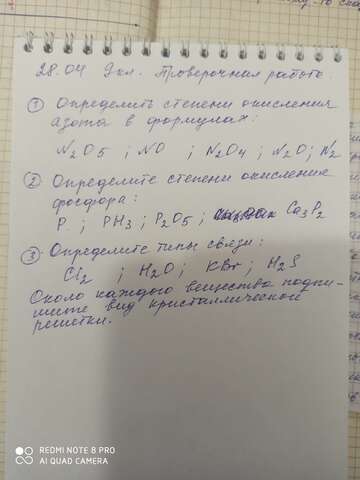 28.04 9кл. Проверочная работа.
① Определить степени окисления
азота в формулах:
N₂O₅ ; NO ; N₂O₄ ; N₂O ; N₂
② Определите степени окисления
фосфора:
P ; PH₃ ; P₂O₅ ; Ca₃P₂
③ Определите типы связи:
Cl₂ ; H₂O ; KBr ; H₂S
Около каждого вещества подпи-
шите вид кристаллической
решетки.
REDMI NOTE 8 PRO
AI QUAD CAMERA